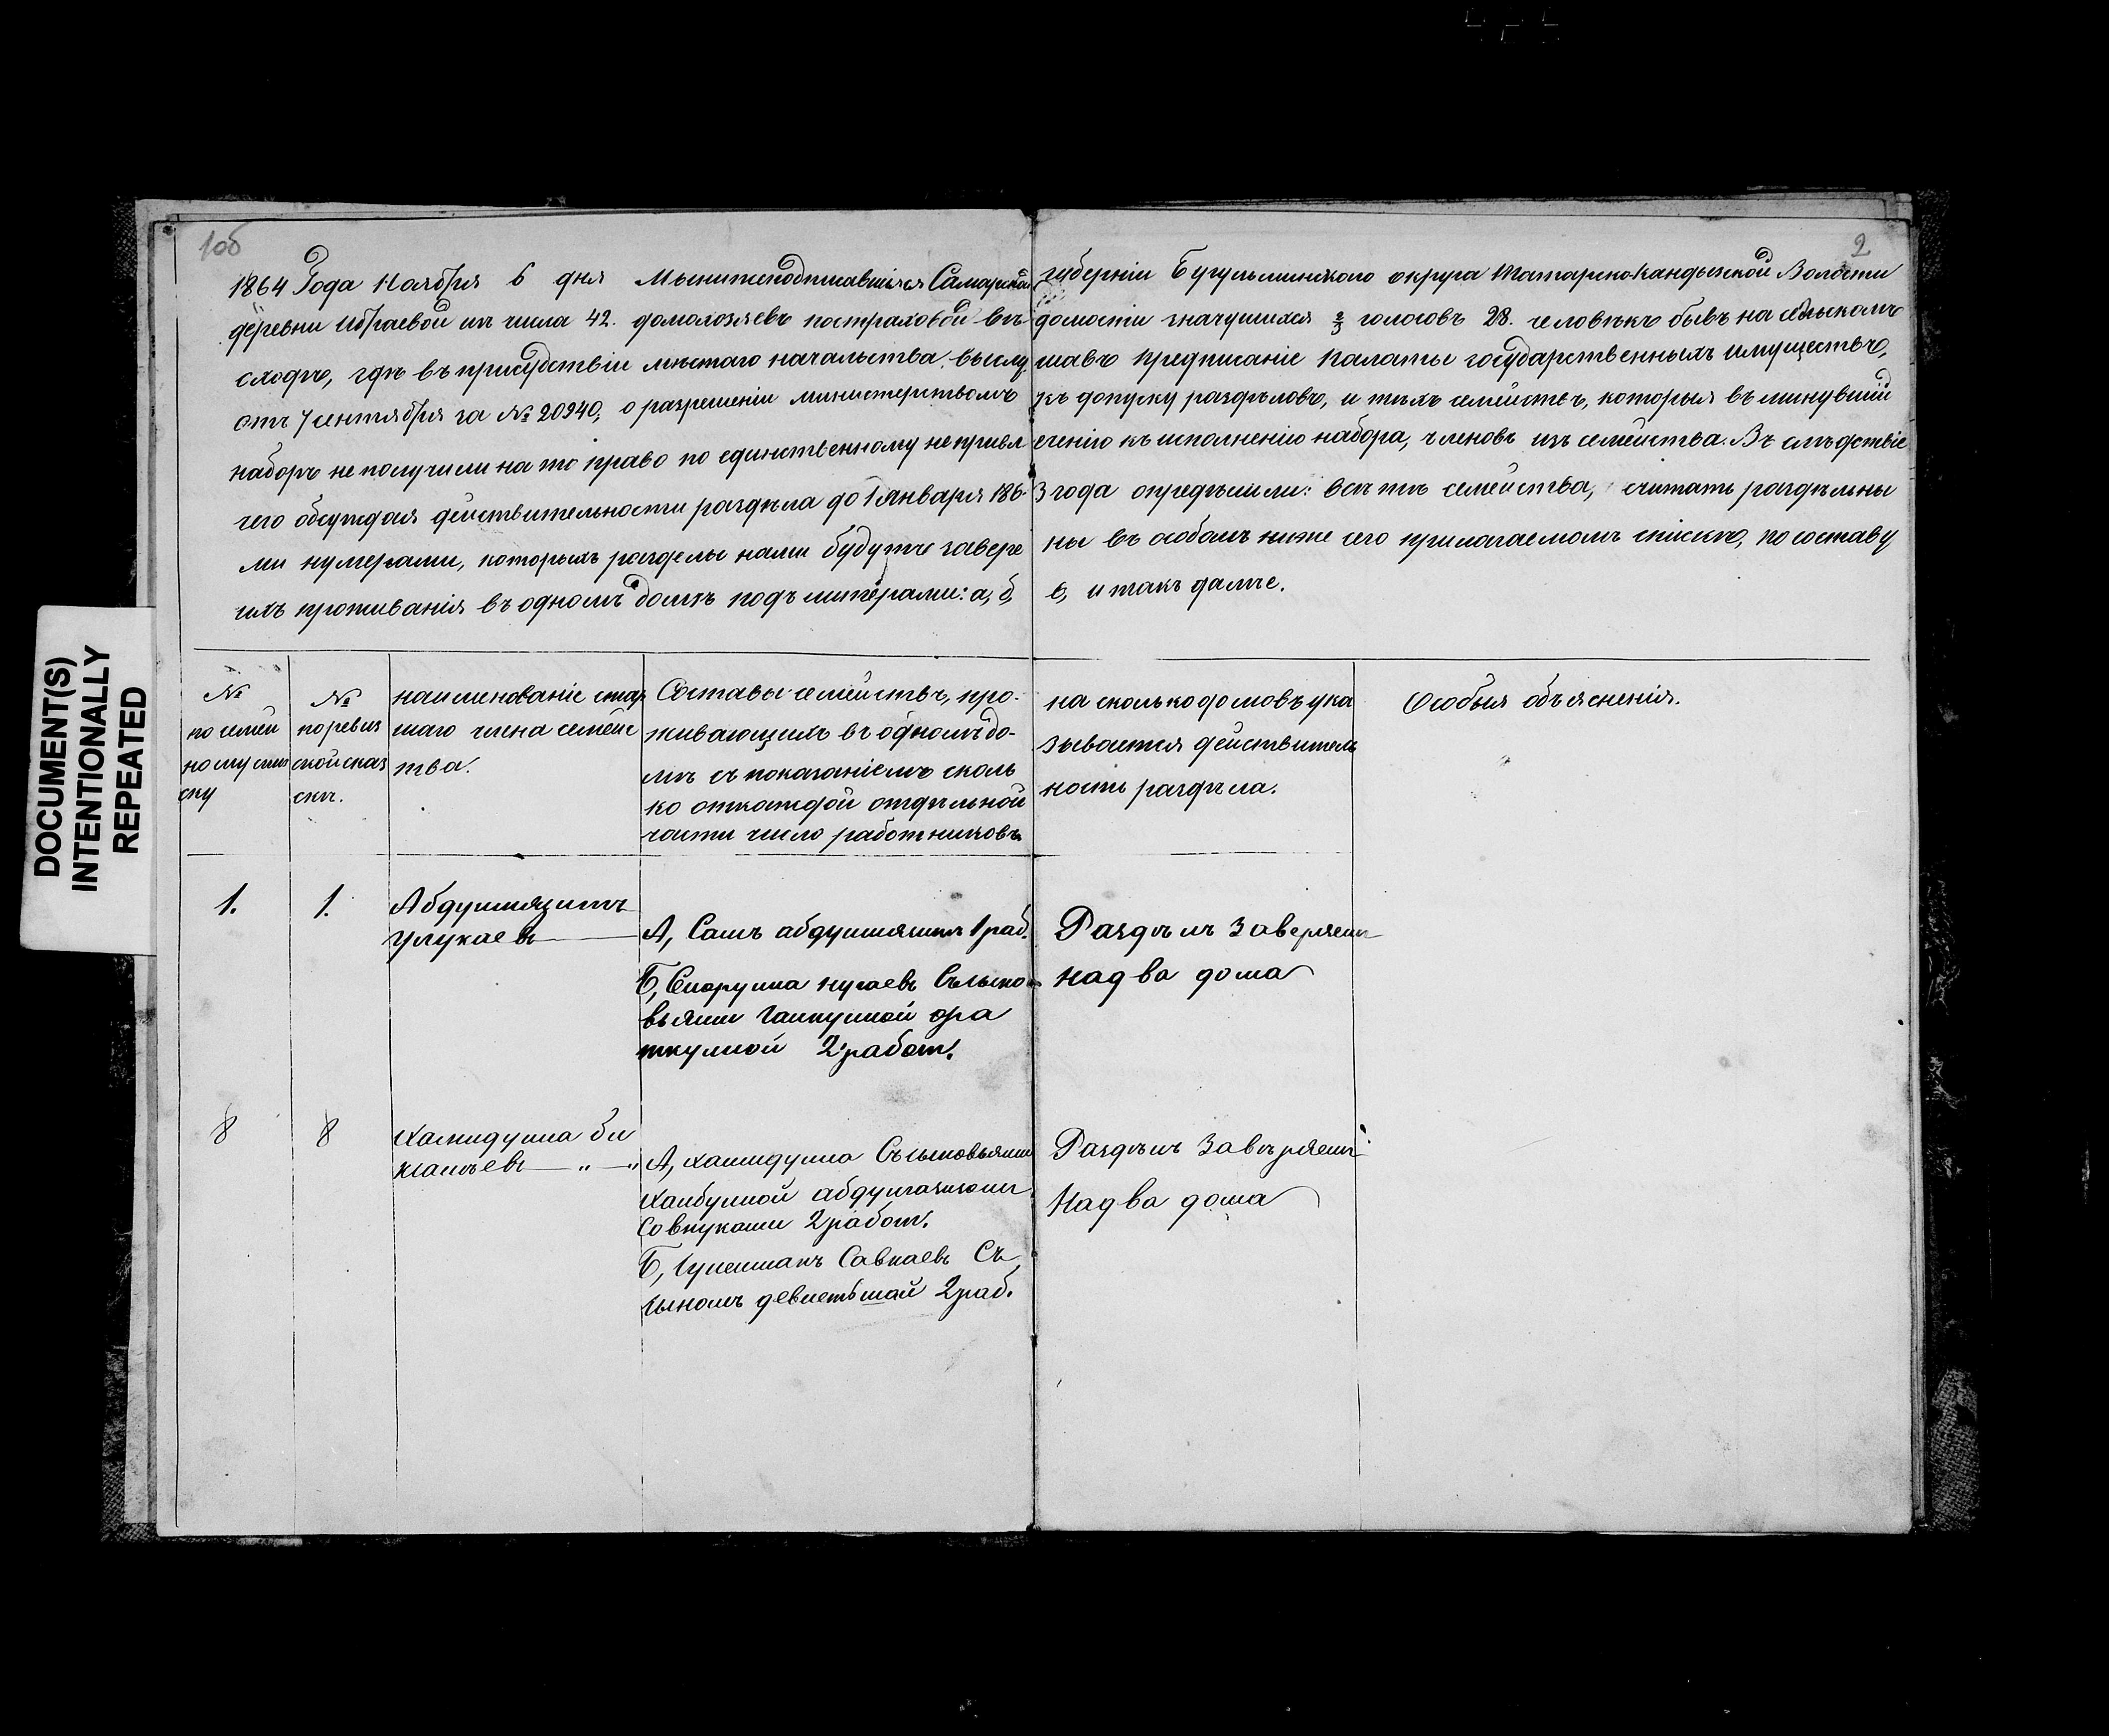 10об
2
1864 Года Ноября 6 дня Мынижеподписавшіяся Самарской губерніи Бугульминского округа Татарско-Кандызской Волости
деревни Ибраевой ис числа 42. домохозяевъ построховой вѣдомости значущихся 2/3 голосовъ 28. человѣкъ бывъ на сельскомъ
сходѣ, гдѣ въ присудствіи мѣстаго начальства, выслушавъ предписаніе Палаты государственныхъ имуществъ,
отъ 7 сентября за № 20940, о разрешеніи министерствомъ къ допуску раздѣловъ, и тѣхъ семействъ, которыя въ минувшій
наборъ не получили на то право по единственному не привлеченію къ исполненію набора, членовъ изъ семейства. Въ слѣдствіе
чего обсуждая действительности раздѣла до 1 Января 1863 года опредѣлили: всѣ тѣ семейства, считать раздѣльны
ми нумерами, которыхъ разделы нами будутъ заверены въ особомъ ниже сего прилагаемомъ спискѣ, по составу
ихъ проживанія въ одномъ домѣ подъ литерами: а, б, в, и такъ далѣе.
№
по семей
ному спи
ску
№
поревиз
ской сказ
скѣ.
наименованіе стар
шаго члена семейс
тва.
Составы семействъ, про-
живающихъ въ одномъ до-
мѣ съ показаніемъ сколь
ко откаждой отдѣльной
части число работниковъ
на сколько домовъ ука
зывается действитель
ность раздѣла.
Особыя объясненія.
1.
1.
Абдуллязитъ
Улукаевъ
А, Самъ абдуллязитъ 1 раб.
Б, нугаевъ Съсыно
вьями
2 работ.
Раздѣлъ Заверяемъ
Надва дома
8
8
Хамидулла би
кташевъ — „ — „
А, хамидулла Съсыновьями
Хайбуллой
Совнуками 2 работ.
Б, Савкаевъ Съ
сыномъ девлетшой 2 раб.
Раздѣлъ Завѣряемъ
Надва дома
DOCUMENT(S)
INTENTIONALLY
REPEATED